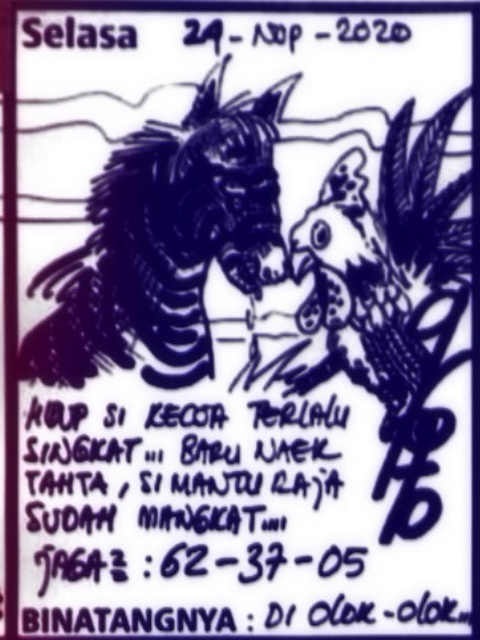 Selasa 24-NOP-2020
HIDUP SI KECOA TERLALU
SINGKAT... BARU NAEK
TAHTA, SI MANTU RAJA
SUDAH MANGKAT....
JAGA2 : 62-37-05
BINATANGNYA : DI OLOK-OLOK...